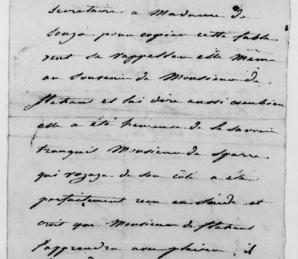 secretaire a Madame de
Souza pour copier cette fable
veut se rappeller elle meme
au souvenir de Monsieur de
flahaut et lui dire aussi combien
elle a été heureuse de le savoir
tranquil Monsieur de Sparre
qui voyage de son coté a été
parfaitement recu en Suéde et
croit que Monsieur de flahaut
l'apprendra avec plaisir il